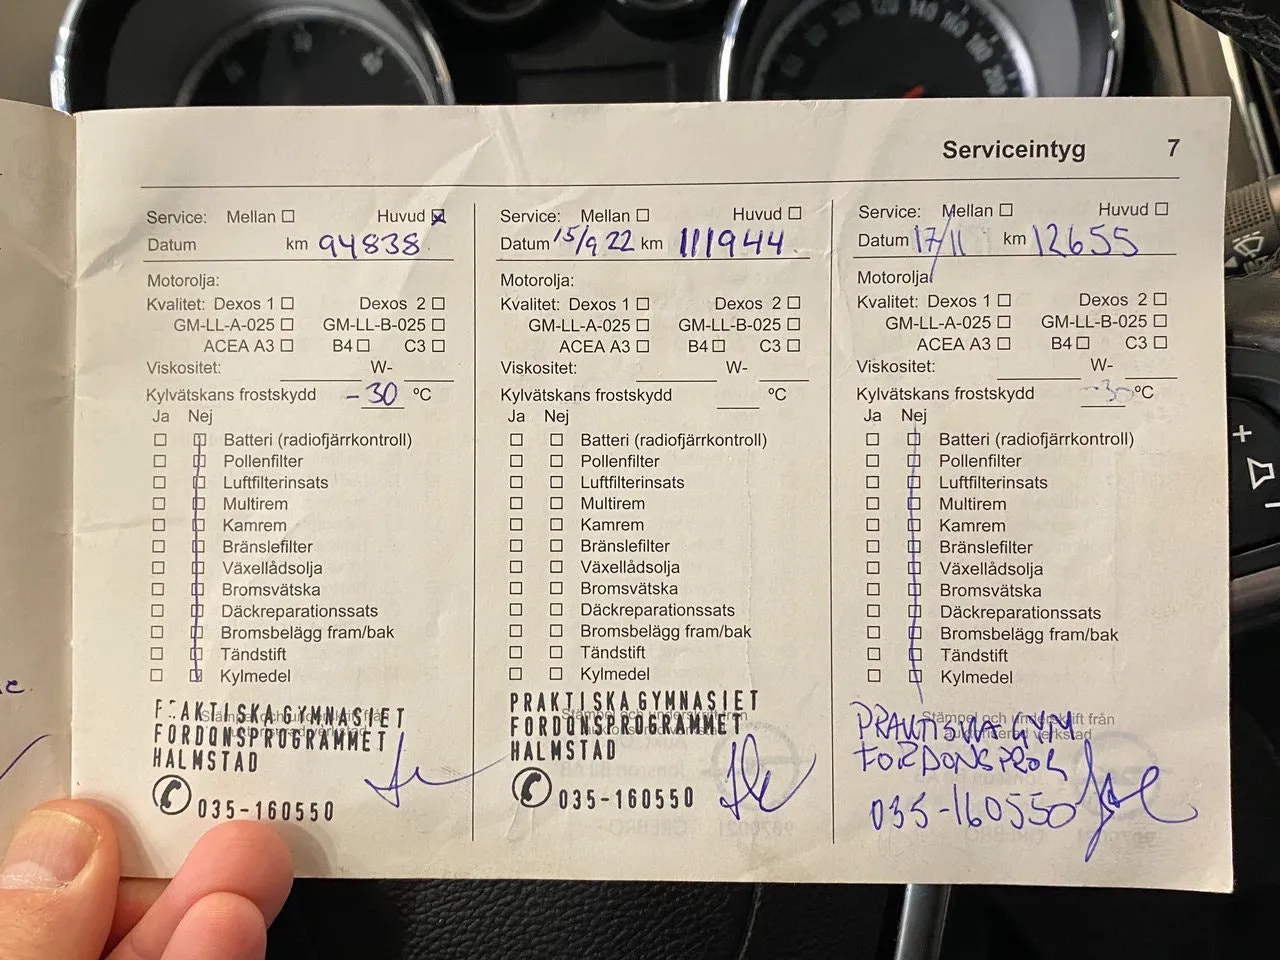 Serviceintyg 7
Service: Mellan Huvud
Datum km 94838
Motorolja:
Kvalitet: Dexos 1 Dexos 2
GM-LL-A-025 GM-LL-B-025
ACEA A3 B4 C3
Viskositet: W-
Kylvätskans frostskydd -30 ºC
Ja Nej
Batteri (radiofjärrkontroll)
Pollenfilter
Luftfilterinsats
Multirem
Kamrem
Bränslefilter
Växellådsolja
Bromsvätska
Däckreparationssats
Bromsbelägg fram/bak
Tändstift
Kylmedel
Stämpel och underskrift från
auktoriserad verkstad
PRAKTISKA GYMNASIET
FORDONSPROGRAMMET
HALMSTAD
035-160550
Service: Mellan Huvud
Datum 15/9 22 km 111944
Motorolja:
Kvalitet: Dexos 1 Dexos 2
GM-LL-A-025 GM-LL-B-025
ACEA A3 B4 C3
Viskositet: W-
Kylvätskans frostskydd ºC
Ja Nej
Batteri (radiofjärrkontroll)
Pollenfilter
Luftfilterinsats
Multirem
Kamrem
Bränslefilter
Växellådsolja
Bromsvätska
Däckreparationssats
Bromsbelägg fram/bak
Tändstift
Kylmedel
PRAKTISKA GYMNASIET
FORDONSPROGRAMMET
HALMSTAD
035-160550
Service: Mellan Huvud
Datum 17/11 km 12655
Motorolja:
Kvalitet: Dexos 1 Dexos 2
GM-LL-A-025 GM-LL-B-025
ACEA A3 B4 C3
Viskositet: W-
Kylvätskans frostskydd -30 ºC
Ja Nej
Batteri (radiofjärrkontroll)
Pollenfilter
Luftfilterinsats
Multirem
Kamrem
Bränslefilter
Växellådsolja
Bromsvätska
Däckreparationssats
Bromsbelägg fram/bak
Tändstift
Kylmedel
Stämpel och underskrift från
auktoriserad verkstad
PRAKTISKA GYM
FORDONSPROG
035-160550